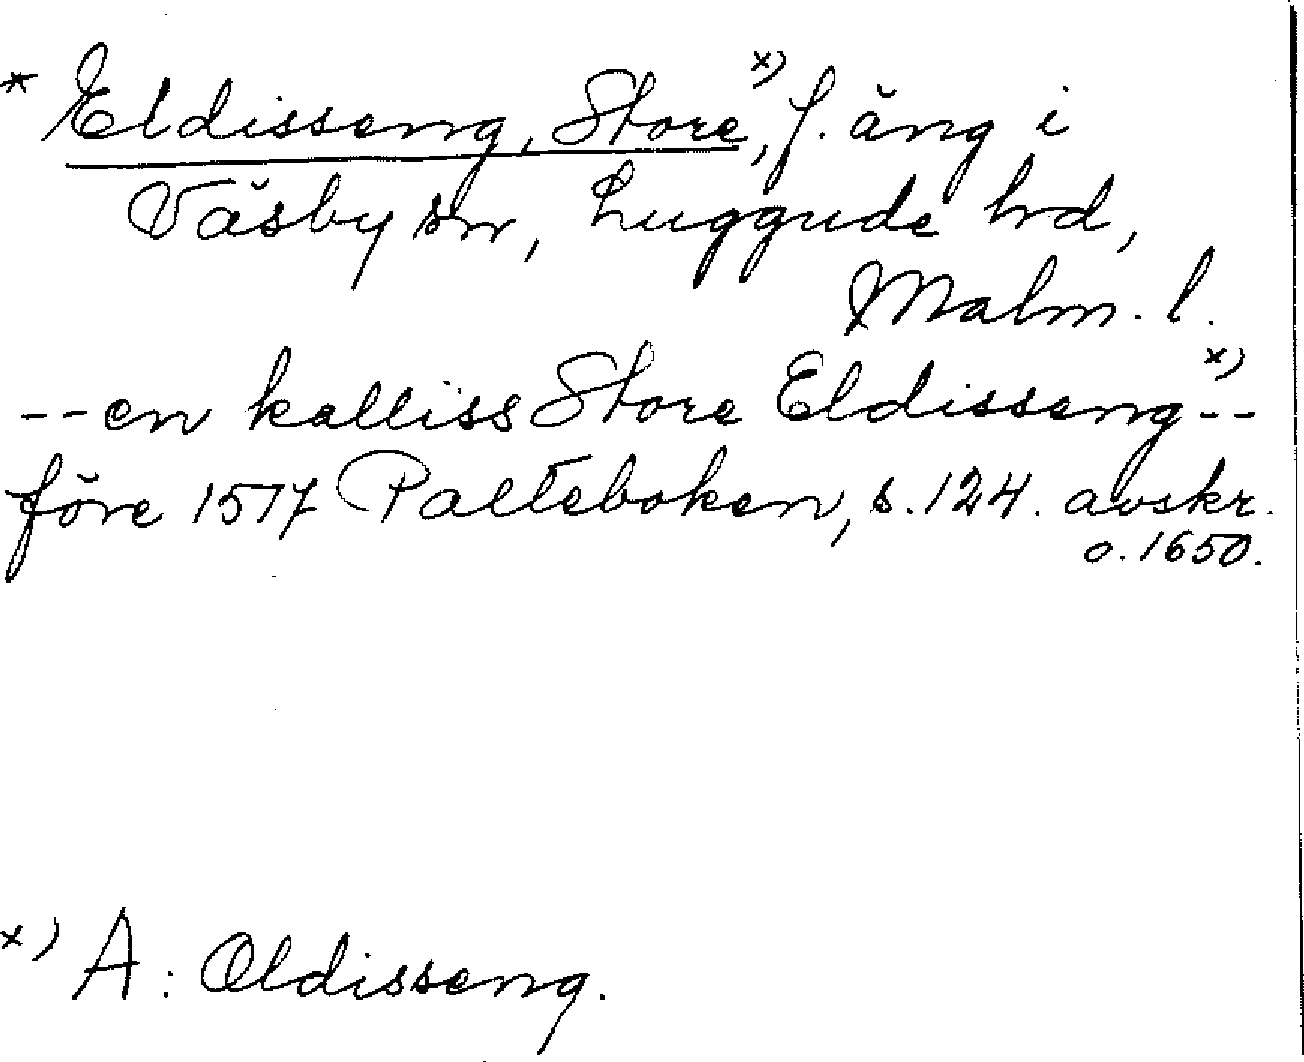 * Eldisseng, Store, x) f. äng i
Väsby sn, Luggude hd,
Malm. l.
-- en kalliss Store Eldisseng x) --
före 1517 Palteboken, s. 124. avskr.
o. 1650.
x) A: Oldisseng.